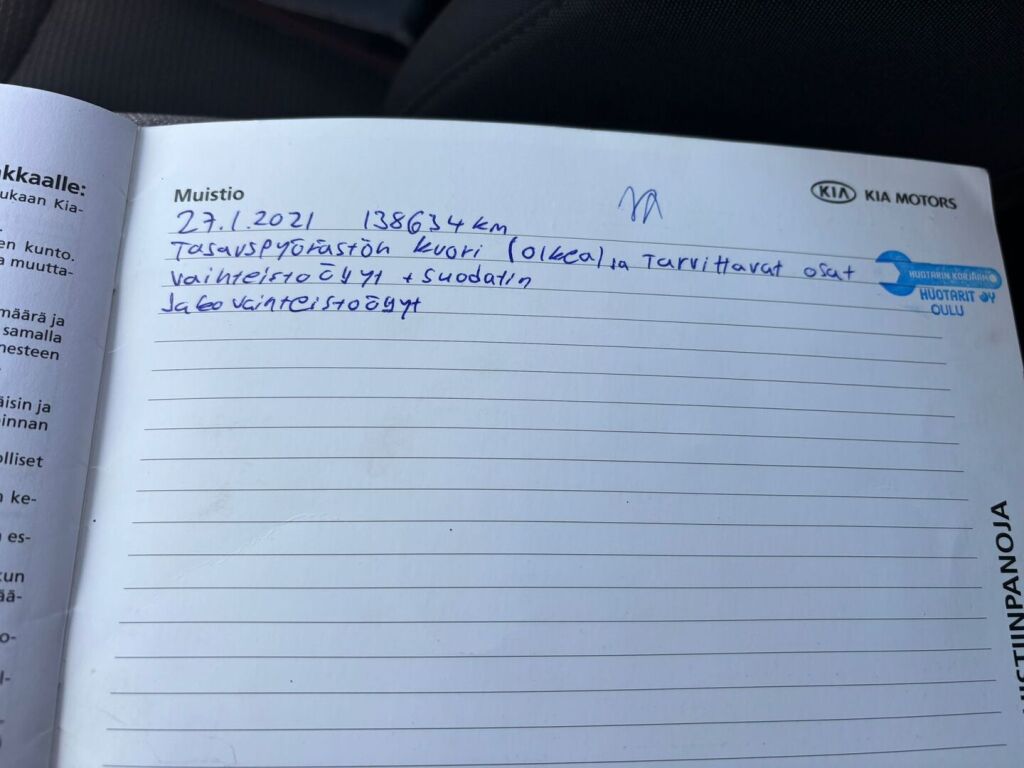 kkaalle:
ukaan Kia-
en kunto.
a muutta-
määrä ja
samalla
nesteen
äisin ja
oinnan
olliset
n ke-
es-
kun
ää-
o-
Muistio
KIA KIA MOTORS
27.1.2021 138634 km
Tasauspyörästön kuori (oikea) ja Tarvittavat osat
Vaihteistoöljyt + Suodatin
Jakovaihteistoöljyt
HUOTARIN KORJAAMO
HUOTARIT OY
OULU
ISTIINPANOJA